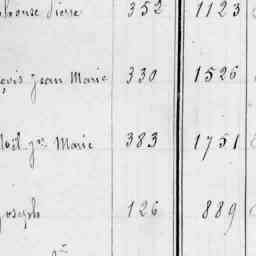 Pierre 352 1123
Jean Marie 330 1526
Noël Jn Marie 383 1751
Joseph 126 889